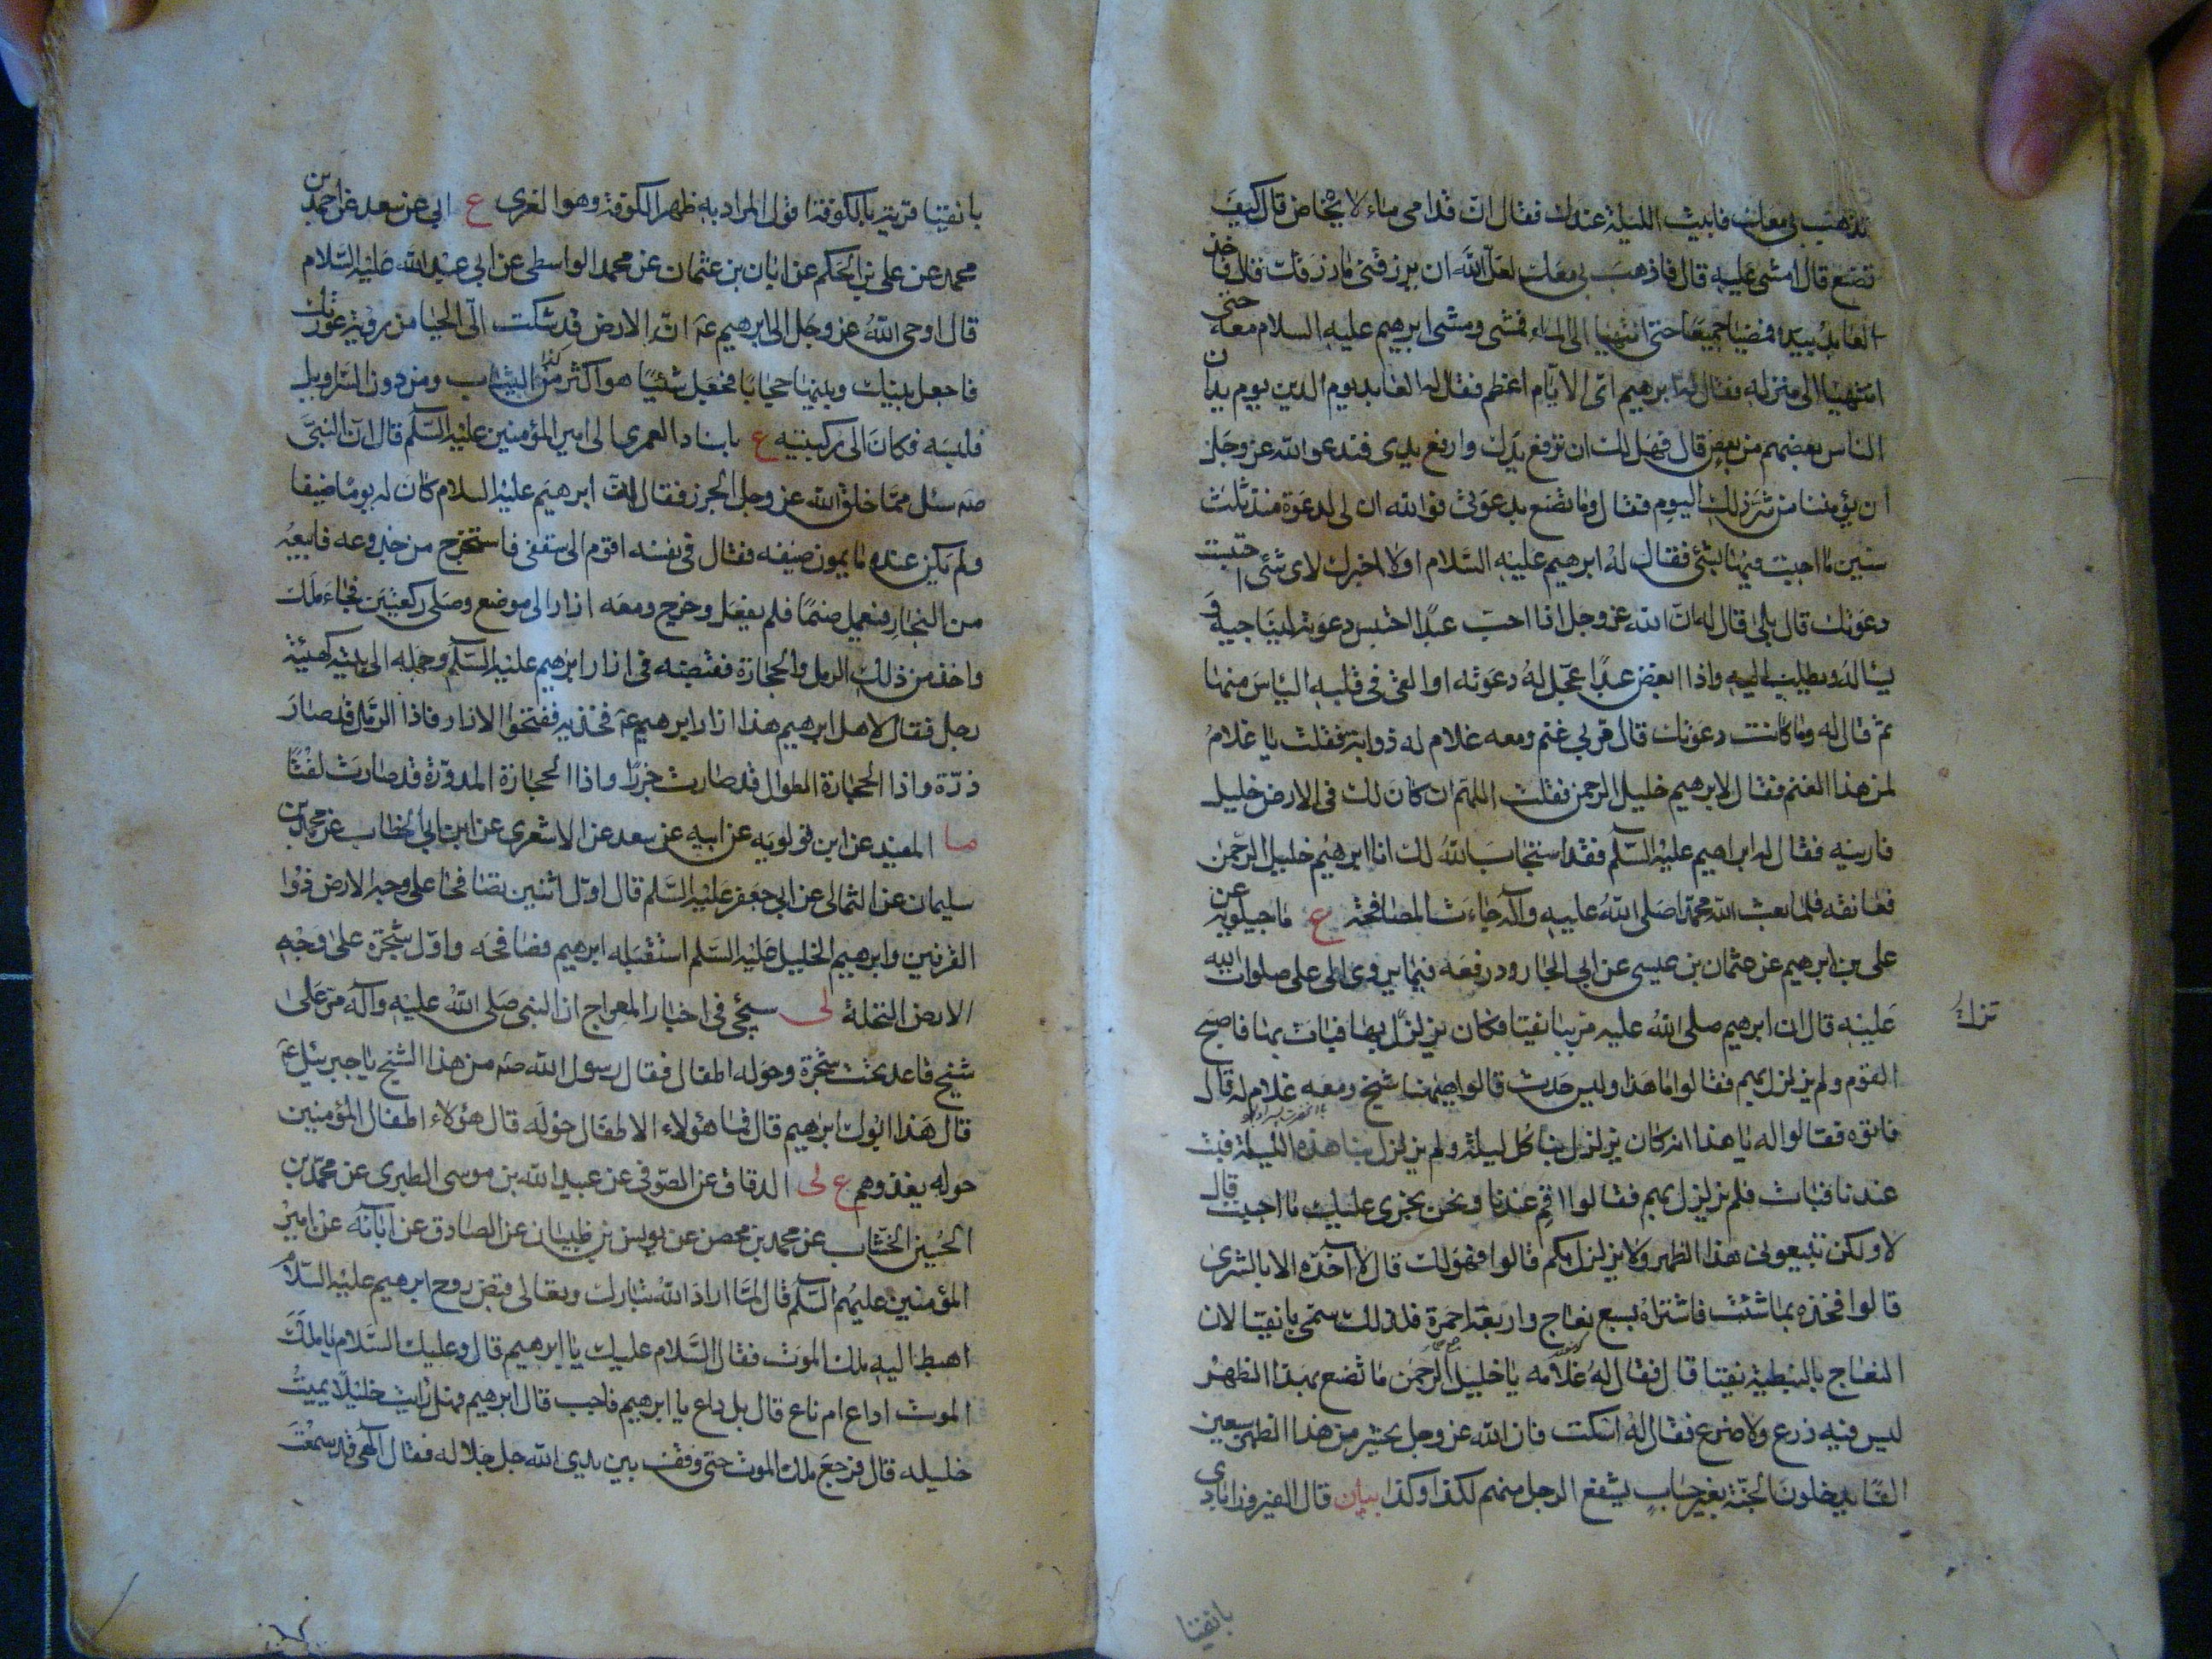 تذهب بي معك فابيت الليلة عندك فقال ان قدامى ماء لا يخاض قال كيف
تصنع قال امشى عليه قال فاذهب بي معك لعل الله ان يرزقنى ما رزقك قال فاخذ
العابد بيده فمضيا جميعا حتى انتهيا الى الماء فمشى ومشى ابرهيم عليه السلام معه حتى
انتهيا الى منزله فقال له ابرهيم اى الايام اعظم فقال له العابد يوم الدين يوم يدان
الناس بعضهم من بعض قال فهل لك ان ترفع يدك وارفع يدى فندعو الله عز وجل
ان يؤمننا من شر ذلك اليوم فقال وما تصنع بدعوتى فوالله ان لى لدعوة منذ ثلث
سنين ما اجبت فيها بشئ فقال له ابرهيم عليه السلام اولا اخبرك لاى شئ احتبست
دعوتك قال بلى قال له ان الله عز وجل اذا احب عبدا احتبس دعوته ليناجيه و
يسأله ويطلب اليه واذا ابغض عبدا عجل له دعوته او القى فى قلبه الياس منها
ثم قال له وما كانت دعوتك قال مر بي غنم ومعه غلام له ذوابة فقلت يا غلام
لمن هذا الغنم فقال لابرهيم خليل الرحمن فقلت اللهم ان كان لك فى الارض خليل
فارنيه فقال له ابراهيم عليه السلم فقد استجاب الله لك انا ابرهيم خليل الرحمن
فعانقه فلما بعث الله محمدا صلى الله عليه وآله جاءت المصافحة ع ماجيلويه عن
على بن ابرهيم عن عثمان بن عيسى عن ابي الجارود رفعه فيما يروى الى على صلوات الله
عليه قال ان ابرهيم صلى الله عليه مر ببانقيا فكان يزلزل بها فبات بها فاصبح
القوم ولم يزلزل بهم فقالوا ما هذا وليس حدث قالوا ههنا شيخ ومعه غلام له قال
فاتوه فقالوا له يا هذا انه كان يزلزل بنا كل ليلة ولم يزلزل بنا هذه الليلة فبت
عندنا فبات فلم يزلزل بهم فقالوا اقم عندنا ونحن نجرى عليك ما احببت قال
لا ولكن تبيعونى هذا الظهر ولا يزلزل بكم قالوا فهو لك قال لا آخذه الا بالشرى
قالوا فخذه بما شئت فاشتراه بسبع نعاج واربعة احمرة فلذلك سمى بانقيا لان
النعاج بالنبطية نقيا قال فقال له غلامه يا خليل الرحمن ما تصنع بهذا الظهر
ليس فيه زرع ولا ضرع فقال له اسكت فان الله عز وجل يحشر من هذا الظهر سبعين
الفا يدخلون الجنة بغير حساب يشفع الرجل منهم لكذا وكذا بيان قال الفيروزابادى
بانقيا
بانقيا قرية بالكوفة اقول المراد به ظهر الكوفة وهو الغرى ع ابي عن سعد عن احمد بن
محمد عن على بن الحكم عن ابان بن عثمان عن محمد الواسطى عن ابي عبد الله عليه السلام
قال اوحى الله عز وجل الى ابرهيم عم ان الارض قد شكت الى الحيا من رؤية عورتك
فاجعل بينك وبينها حجابا فجعل شيئا هو اكثر من الثياب ومن دون السراويل
فلبسه فكان الى ركبتيه ع باسناد العمرى الى امير المؤمنين عليه السلم قال ان النبى
صه سئل مما خلق الله عز وجل الجزر فقال ان ابرهيم عليه السلام كان له يوما ضيفا
ولم يكن عنده ما يمون ضيفه فقال فى نفسه اقوم الى سقفى فاستخرج من جذوعه فابيعه
من النجار فيعمل صنما فلم يفعل وخرج ومعه ازار الى موضع وصلى ركعتين فجاء ملك
واخذ من ذلك الرمل والحجارة فقبضه فى ازار ابرهيم عليه السلم وحمله الى بيته كهيئة
رجل فقال لاهل ابرهيم هذا ازار ابرهيم عم فخذيه ففتحوا الازار فاذا الرمل قد صار
ذرة واذا الحجارة الطوال قد صارت جزرا واذا الحجارة المدورة قد صارت لفتا
ما المفيد عن ابن قولويه عن ابيه عن سعد عن الاشعرى عن ابن ابي الخطاب عن محمد بن
سليمان عن الثمالى عن ابي جعفر عليه السلم قال اول اثنين تصافحا على وجه الارض ذوا
القرنين وابرهيم الخليل عليه السلم استقبله ابرهيم فصافحه واول شجرة على وجه
الارض النخلة لى سيجئ فى اخبار المعراج ان النبى صلى الله عليه وآله مر على
شيخ قاعد تحت شجرة وحوله اطفال فقال رسول الله صه من هذا الشيخ يا جبرئيل عم
قال هذا ابوك ابرهيم قال فما هؤلاء الاطفال حوله قال هؤلاء اطفال المؤمنين
حوله يغذوهم ع لى الدقاق عن الصوفى عن عبيد الله بن موسى الطبرى عن محمد بن
الحسين الخشاب عن محمد بن محصن عن يونس بن ظبيان عن الصادق عن ابآئه عن امير
المؤمنين عليهم السلم قال لما اراد الله تبارك وتعالى قبض روح ابرهيم عليه السلام
اهبط اليه ملك الموت فقال السلام عليك يا ابرهيم قال وعليك السلام يا ملك
الموت اداع ام ناع قال بل داع يا ابرهيم فاجب قال ابرهيم فهل رأيت خليلا يميت
خليله قال فرجع ملك الموت حتى وقف بين يدى الله جل جلاله فقال الهى قد سمعت